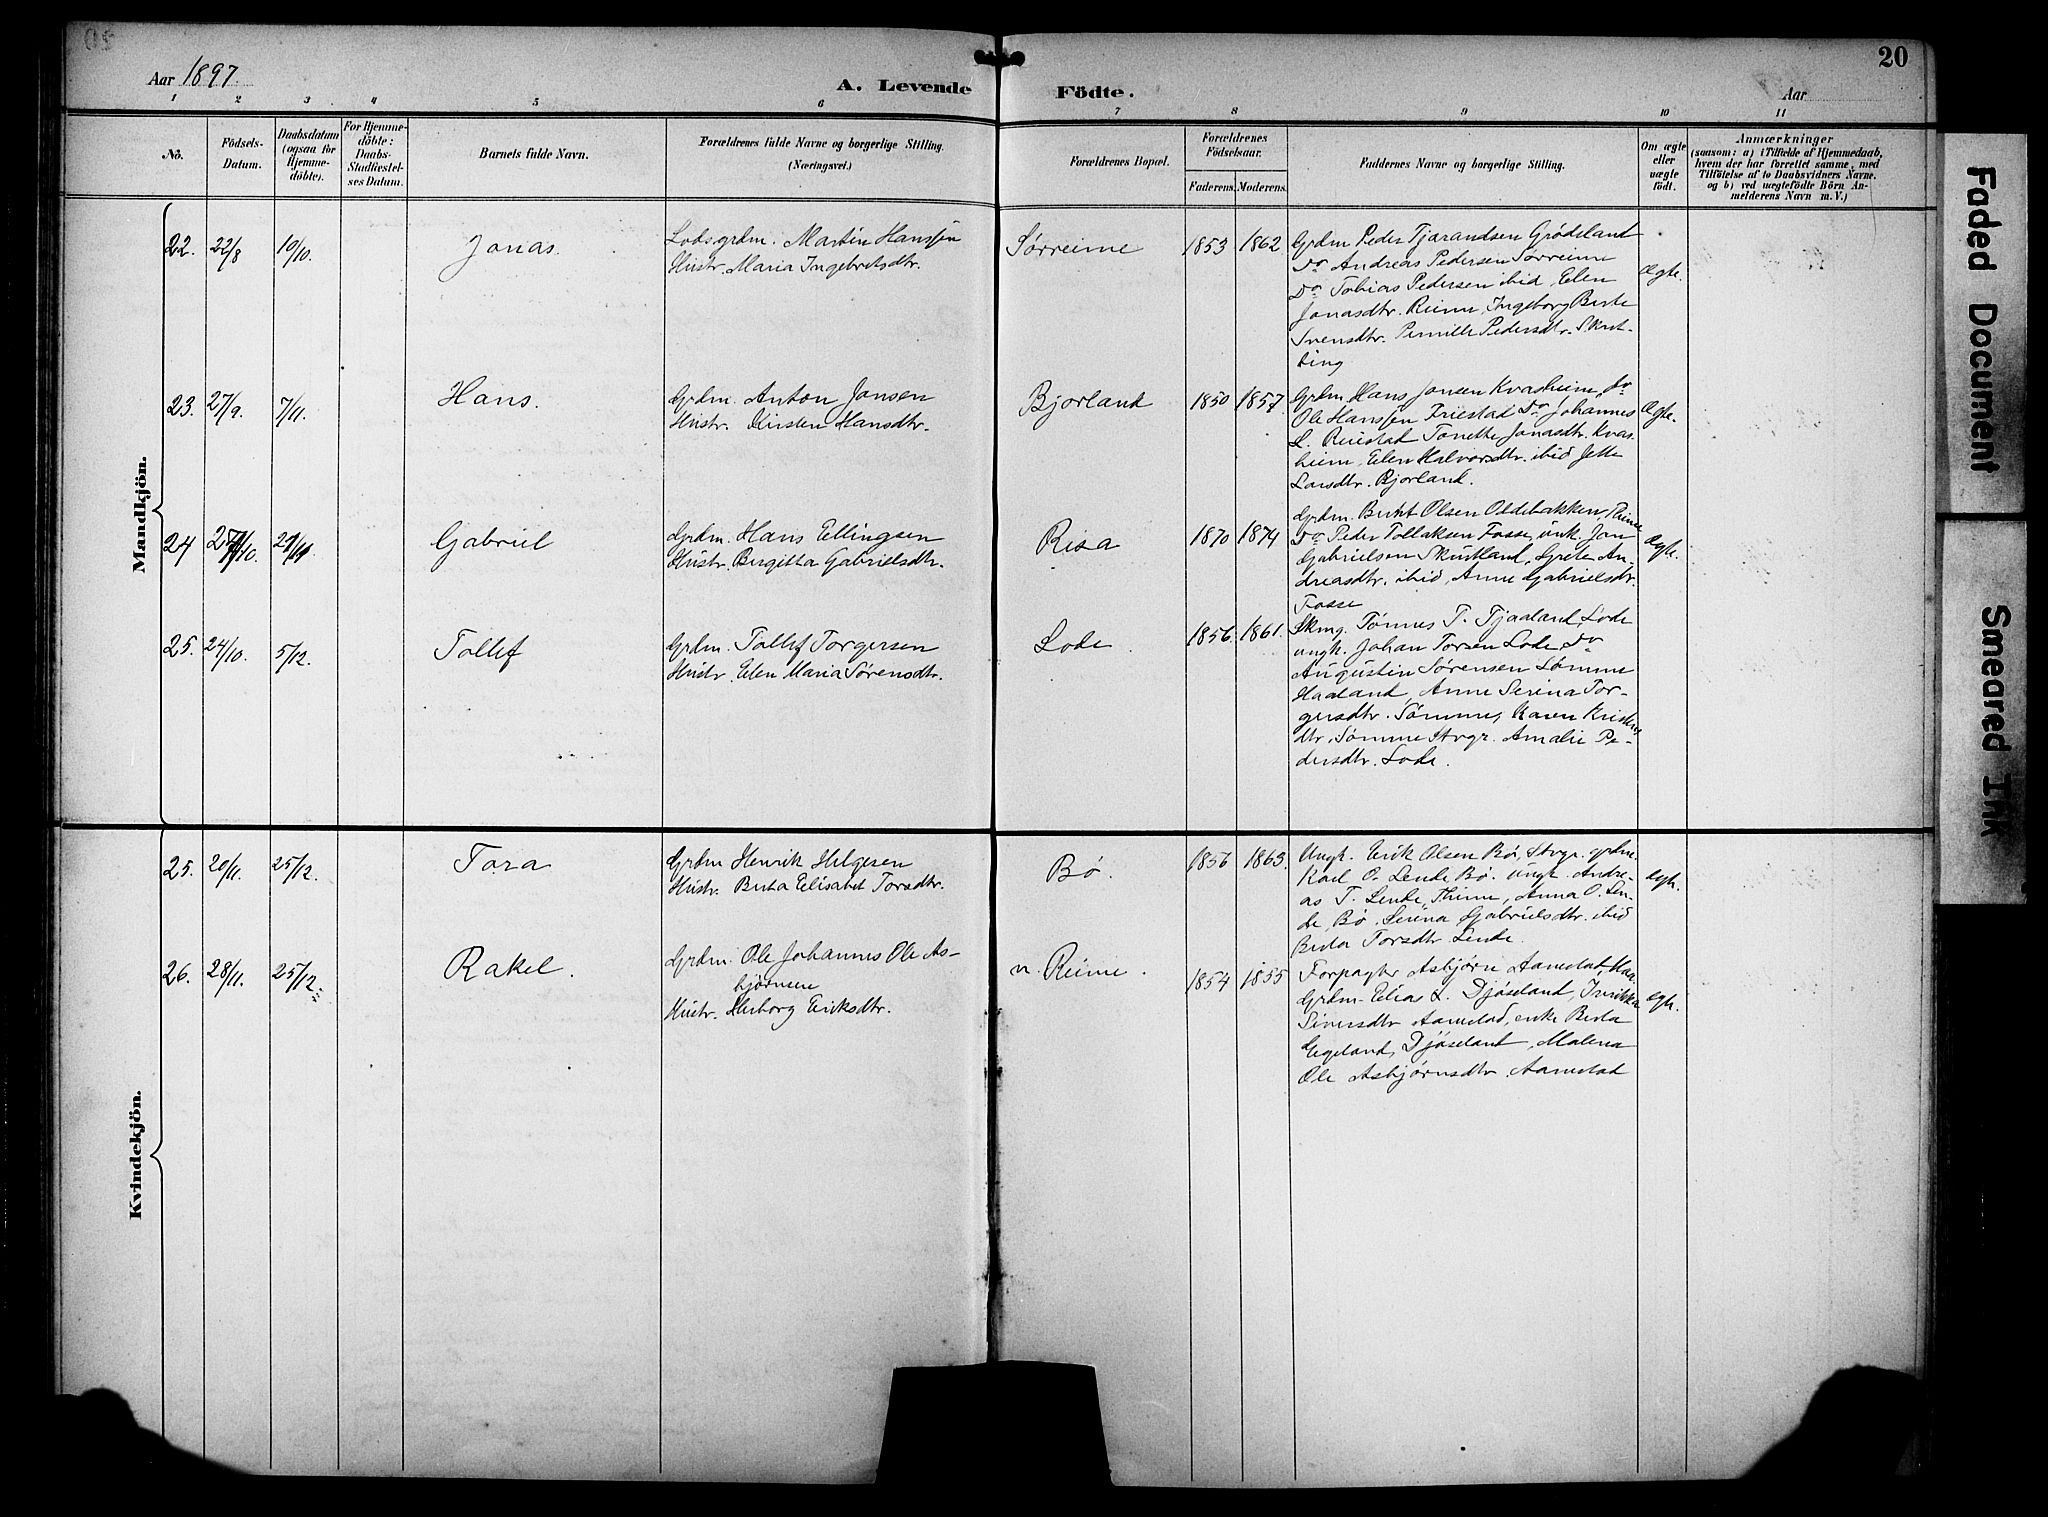 20
Aar 1897.
A. Levende Födte.
Aar
1 2 3 4 5 6 7 8 9 10 11
No.
Födsels-
Datum.
Daabsdatum
(ogsaa for
Hjemme-
döbte).
For Hjemme-
döbte:
Daabs-
Stadfæstel-
ses Datum.
Barnets fulde Navn.
Forældrenes fulde Navne og borgerlige Stilling.
(Næringsvei.)
Forældrenes Bopæl.
Forældrenes
Födselsaar.
Faderens. Moderens.
Faddernes Navne og borgerlige Stilling.
Om ægte
eller
uægte
født.
Anmærkninger
(saasom: a) i Tilfælde af Hjemmedaab,
hvem der har forrettet samme, med
Tilföielse af to Daabsvidners Navne.
og b) ved uægtefödte Börn An-
melderens Navn m. V.)
Mandkjön.
22. 22/8 19/10. Jonas.
Lods. grdm. Martin Hanssen
Hustr. Maria Ingebretsdtr.
Sørreime 1853 1862
Grdm Peder Tjerandsen Grødeland
Do Andreas Pedersen Sørreime
Do Tobias Pedersen ibid, Elen
Jonasdtr. Reime, Ingeborg Berte
Svensdtr. Pernille Pedersdtr. Skret-
ting
Ægte.
23. 27/9. 7/11. Hans.
Grdm. Anton Jonsen
Hustr. Kirsten Hansdtr.
Bjorland 1850 1857
Grdm. Hans Jonsen Kvasheim, Do
Ole Hanssen Friestad Do Johannes
L. Reiestad Tonette Jonasdtr. Kvas-
heim, Elen Halvorsdtr. ibid Jette
Larsdtr. Bjorland.
Ægte.
24 Gabriel
Grdm. Hans Ellingsen
Hustr. Birgitta Gabrielsdtr.
Risa 1870 1874
Grdm. Bernt Olsen Oldebakken, Reime
Do Peder Tollaksen Fosse, unk. Jon
Gabrielsen Skretland, Grete An-
dreasdtr. ibid, Anne Gabrielsdtr.
Fosse
Ægte.
25. 24/10. 5/12. Tollef
Grdm. Tollef Torgersen
Hustr. Elen Maria Sørensdtr.
Lode. 1856. 1861.
Skmg. Tønnes T. Tjaaland, Lode
ungk. Johan Torsen Lode, Do
Augustin Sørensen Sømme
Haaland, Anne Serina Tor-
gersdtr. Sømme, Karen
dtr, Sømme Strgr. Amalie Pe-
dersdtr. Lode.
Kvindekjön.
25. 20/11. 25/12. Tora
Grdm Henrik Helgesen
Hustr. Berta Elisabet Torsdtr.
Bø. 1856 1863.
Ungk. Erik Olsen Bø, Strgr. grdm.
Karl O. Lende Bø. ungk. Andre-
as T. Lende, Thime, Anna O. Len-
de, Bø. Serina Gabrielsdtr. ibid
Berta Torsdtr. Lende.
Ægt.
26. 28/11. 25/12. Rakel.
Grdm. Ole Johannes Ole As-
bjørnsen
Hustr. Herborg Eriksdtr.
n. Reime. 1854 1855
Forpagter Asbjørn Aanestad,
Grdm. Elias L. Djøseland,
Siversdtr Aanestad, enke Berta
Egeland, Djøseland, Malena
Ole Asbjørnsdtr. Aanestad
Ægt.
Faded Document
Smeared Ink